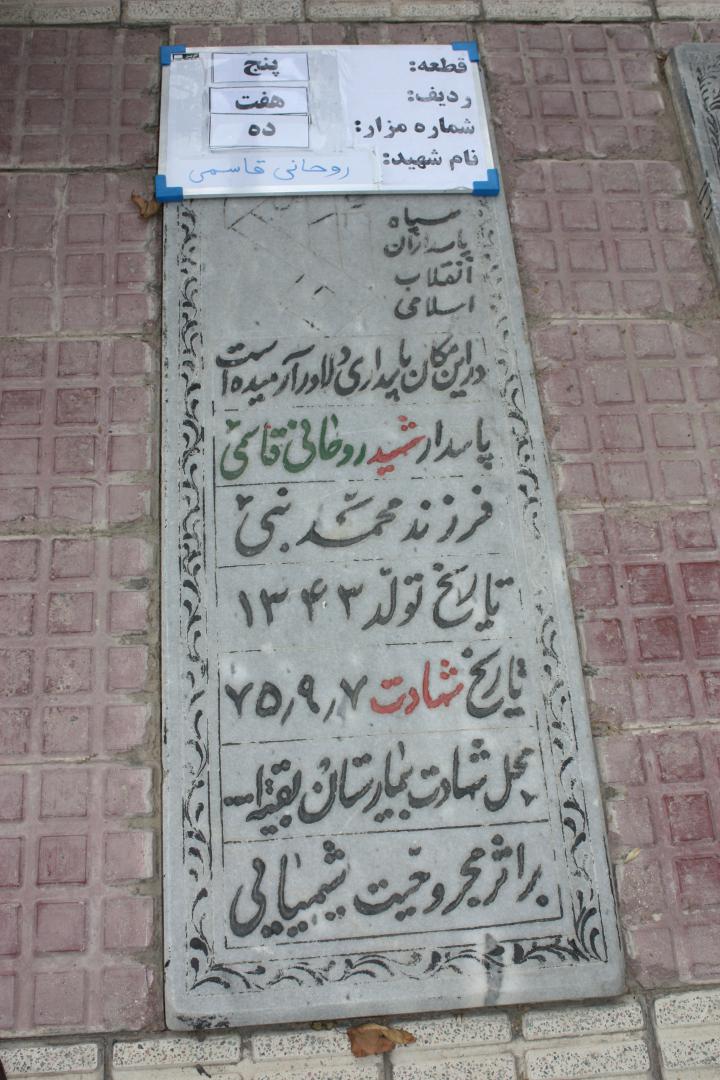 قطعه: پنج
ردیف: هفت
شماره مزار: ده
نام شهید: روحانی قاسمی
سپاه
پاسداران
انقلاب
اسلامی
در این مکان پاسداری دلاور آرمیده است
پاسدار شهید روحانی قاسمی
فرزند محمد نبی
تاریخ تولد ۱۳۴۳
تاریخ شهادت ۷۵٫۹٫۷
محل شهادت بیمارستان بقیه ا...
بر اثر مجروحیت شیمیایی